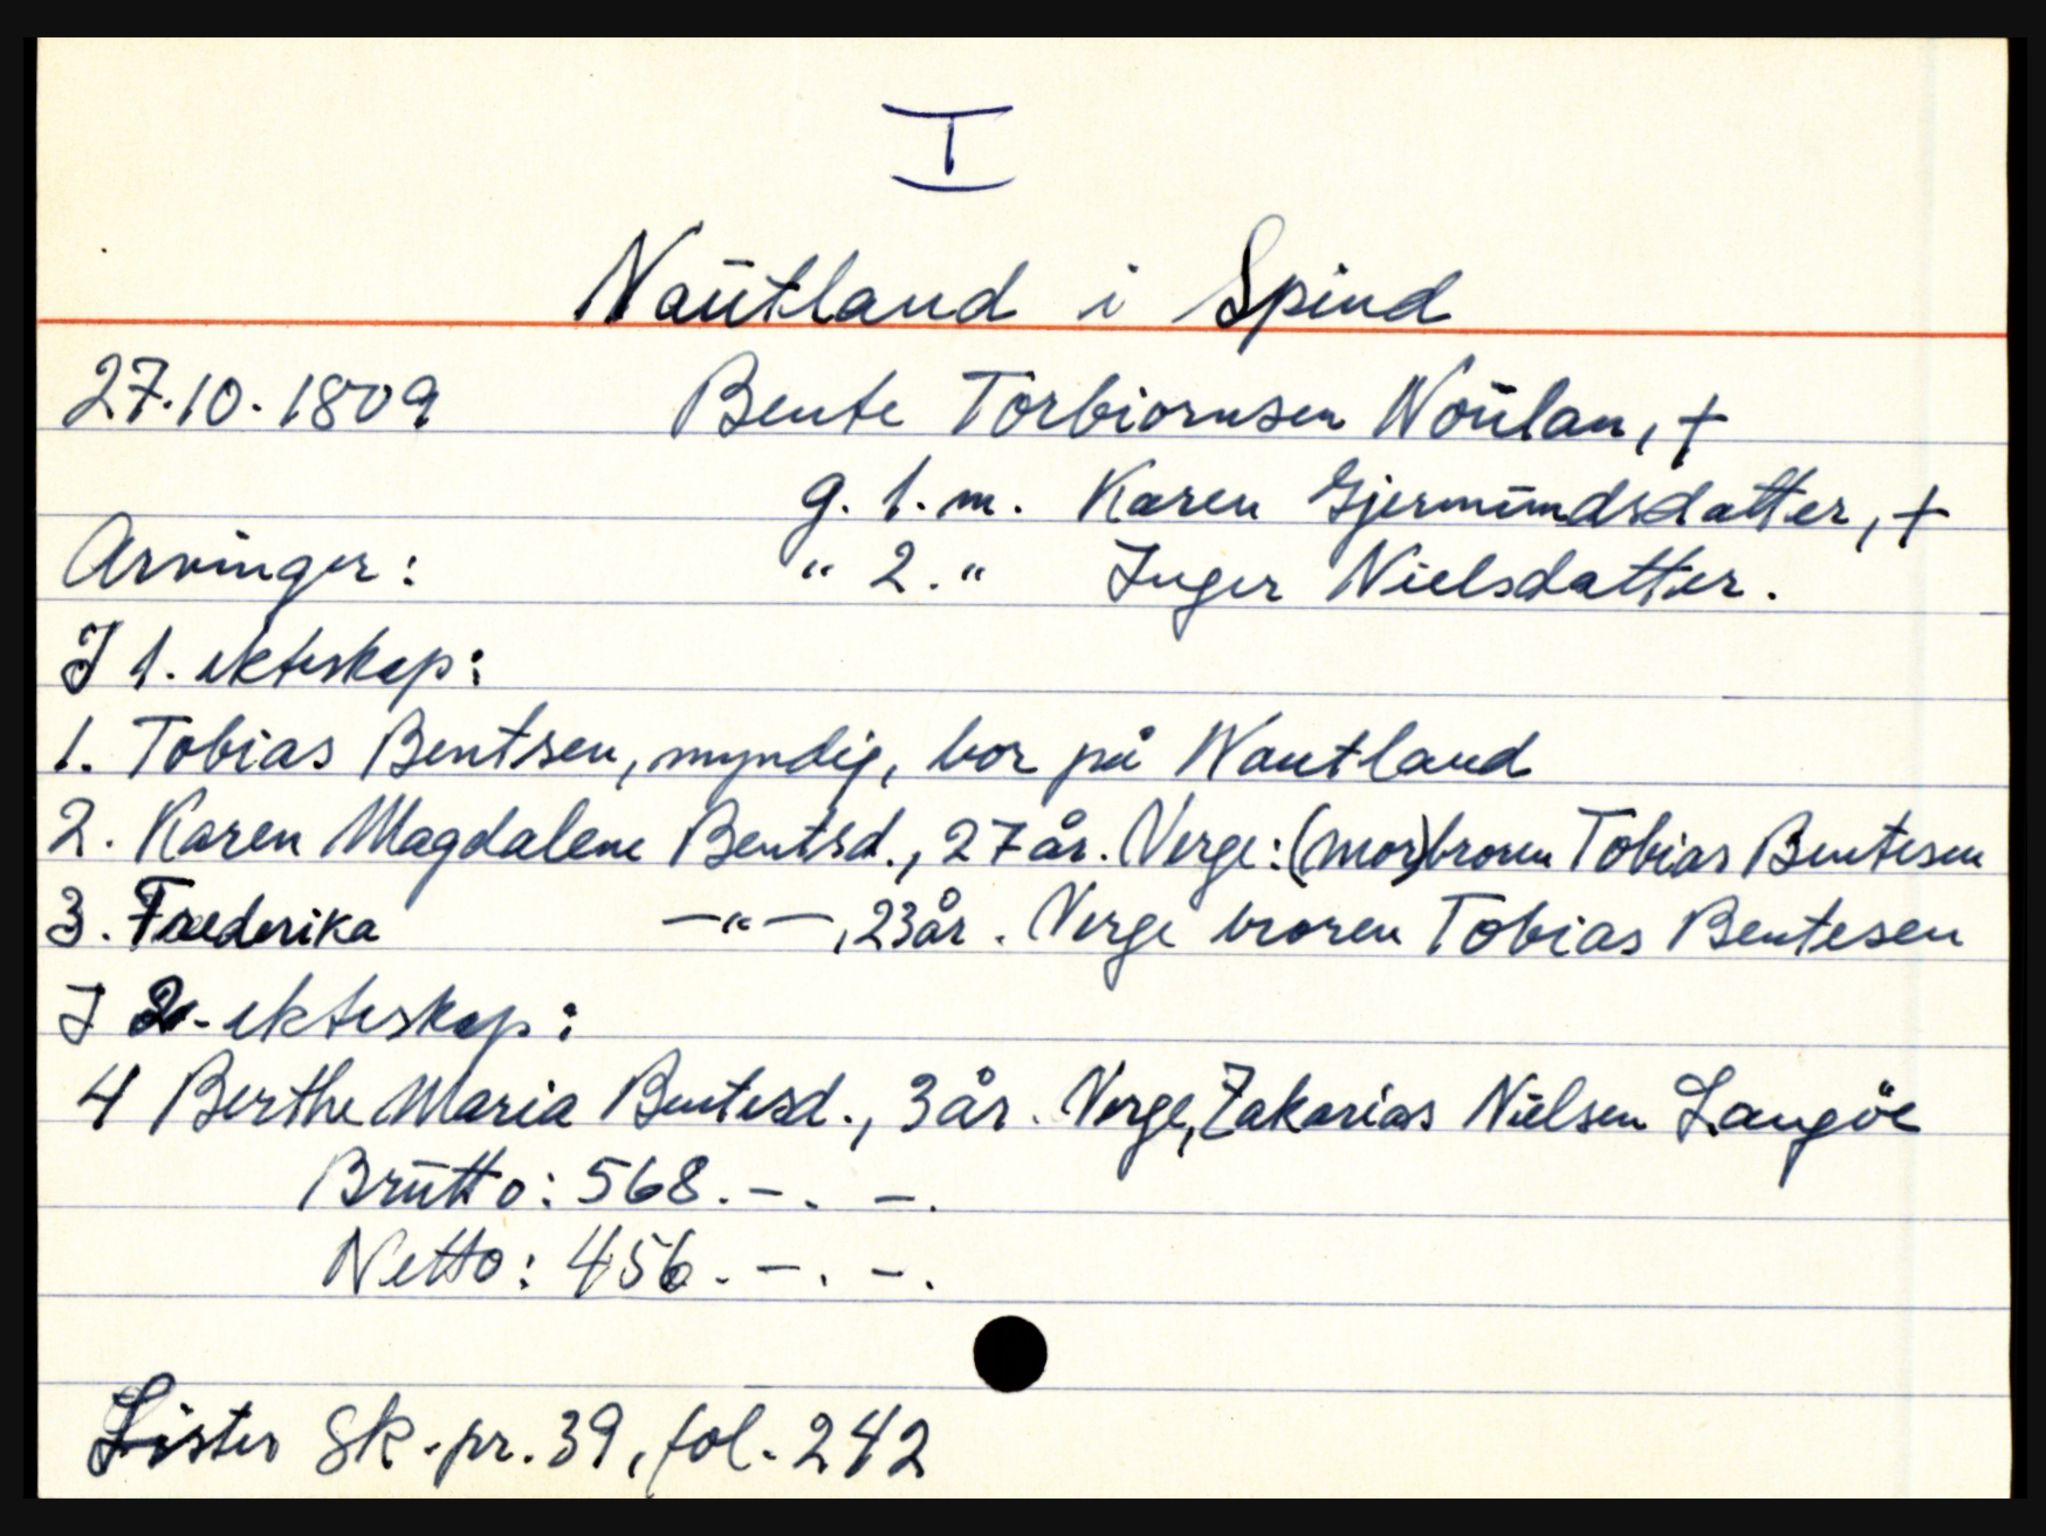 I
Nautland i Spind
27.10.1809 Bente Torbiornsen Noulan, †
g. 1. m. Karen Gjermundsdatter, †
Arvinger: " 2. " Inger Nielsdatter.
I 1. ekteskap:
1. Tobias Bentsen, myndig, bor på Nautland
2. Karen Magdalene Bentsd., 27 år. Verge: (mor)broren Tobias Bentesen
3. Frederika —"—, 23 år. Verge broren Tobias Bentesen
I 2. ekteskap:
4 Berthe Maria Bentesd., 3 år. Verge, Zakarias Nielsen Langöe
Brutto: 568. –. –.
Netto: 456. –. –.
Lister Sk.pr. 39, fol. 242